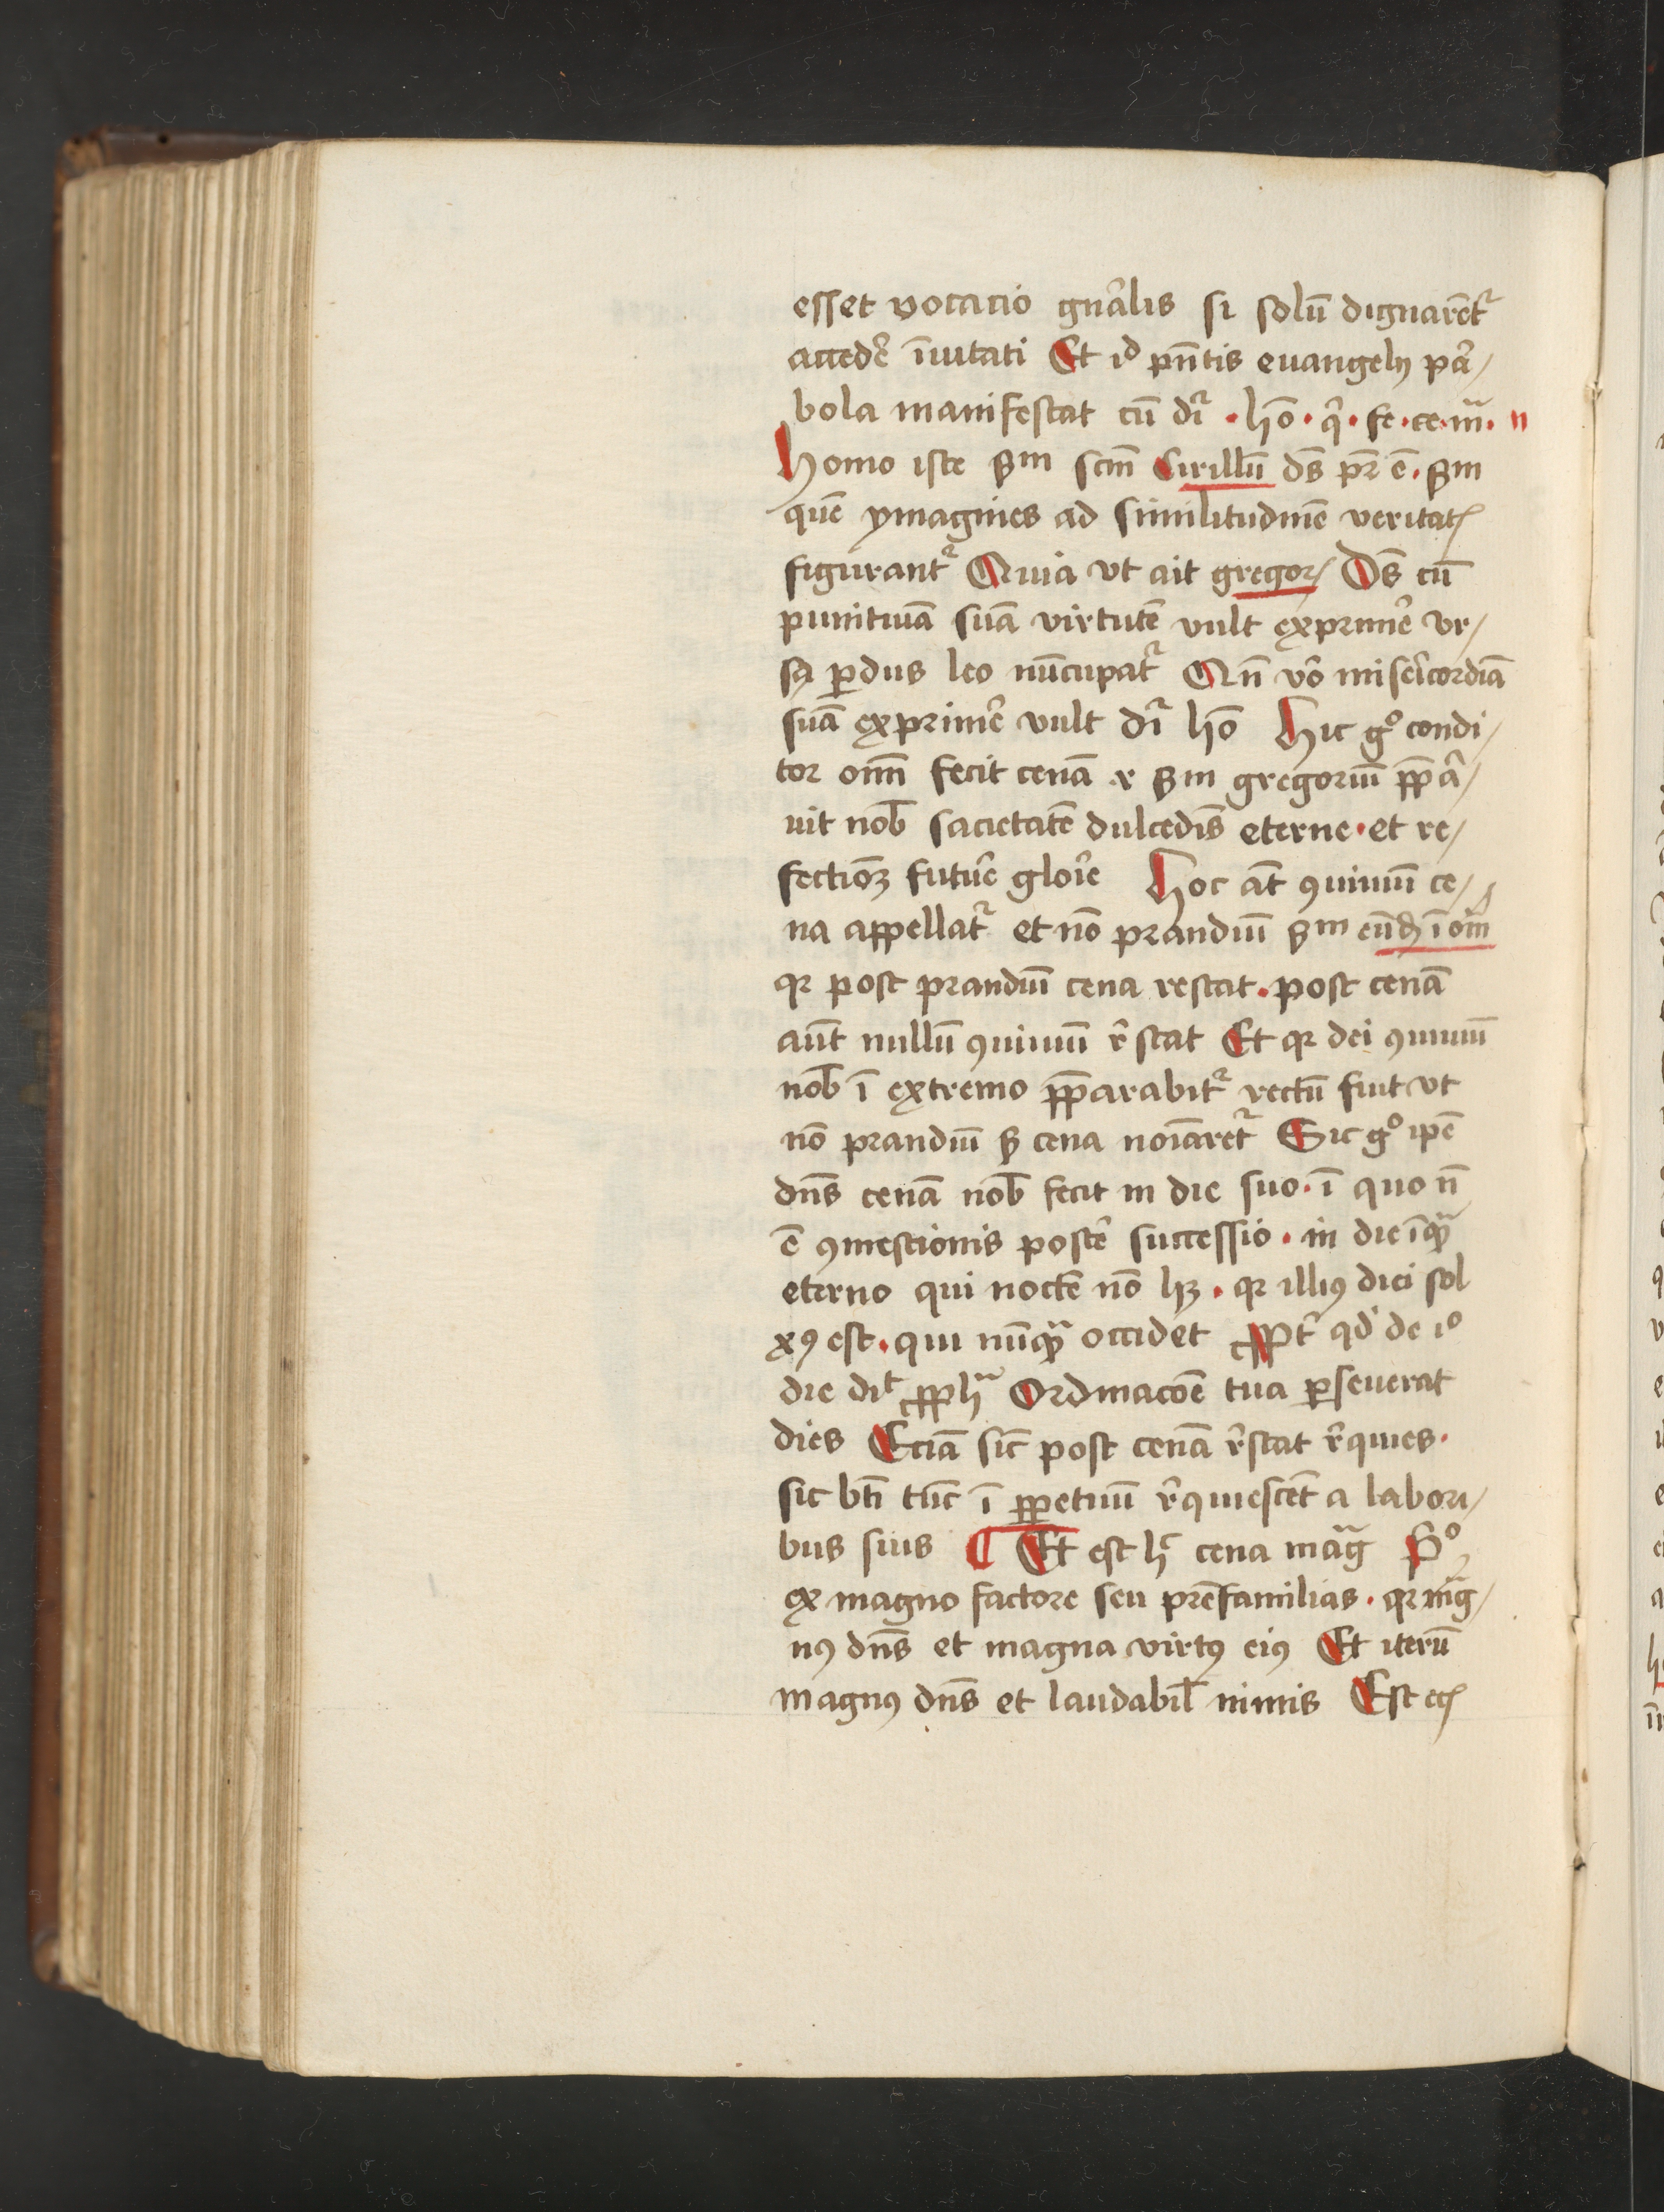 esset vocatio gn̄alis si solū dignarēt᷑
accedẽ īuitati Et iđ pn̄tis euangelij pa᷑/
bola manifestat cū dr̄ · hō · q̇ · fe · ce · m̄ · "
Homo iste ẜm scm̄ Cirillū ds̄ pr̄ ē · ẜm
quē ymagines ad similitudinē veritatꝭ
figurant᷑ Quia vt ait gregorꝭ Ds̄ cū
punitiuā suā virtutē vult exprimẽ vr/
sꝯ ꝑdus leo nūcupat᷑ Qn̄ v̊o misericordiā
suā exprimẽ vult dr̄ hō Hic g° condi/
tor om̄ fecit cenā ⁊ ẜm gregoriū p̄pa᷑/
uit nob̄ sacietatē dulcedīs eterne · et re/
fectionꝫ futuẽ gloĩe Hoc āt ꝯuiuiū ce/
na appellat᷑ et nō prandiū ẜm eūdꝫ ī om̄
qꝛ post prandiū cena restat · post cenā
aūt nullū ꝯuiuiū r̃stat Et qꝛ dei ꝯuiuiū
nob̄ ī extremo p̄parabit᷑ rectū fuit vt
nō prandiū ẜ cena noiaret᷑ Sic g° ipē
dn̄s cenā nob̄ fecit in die suo · ī quo n̄
ē ꝯmestionis postẽ successio · in die īqͣꝫ
eterno qui noctē nō hꝫ · qꝛ illiꝰ diei sol
xꝑꝰ est · qui nūqͣꝫ occidet Ꝓpt̃ qd̃ de i°
die dīt ꝓphͣ Ordinacōe tua ꝑseuerat
dies Eciā sic̄ post cenā r̃stat r̃quies ·
sic bt̄i tūc ī ꝑpetuū r̃quiescēt a labori/
bus suis ¶ Et est hͨ cena māg P°
ex magno factore seu pr̄efamilias · qꝛ māg/
nꝰ dn̄s et magna virtꝰ eiꝰ Et iterū
magnꝰ dn̄s et laudabil̄ nimis Est ecꝭ